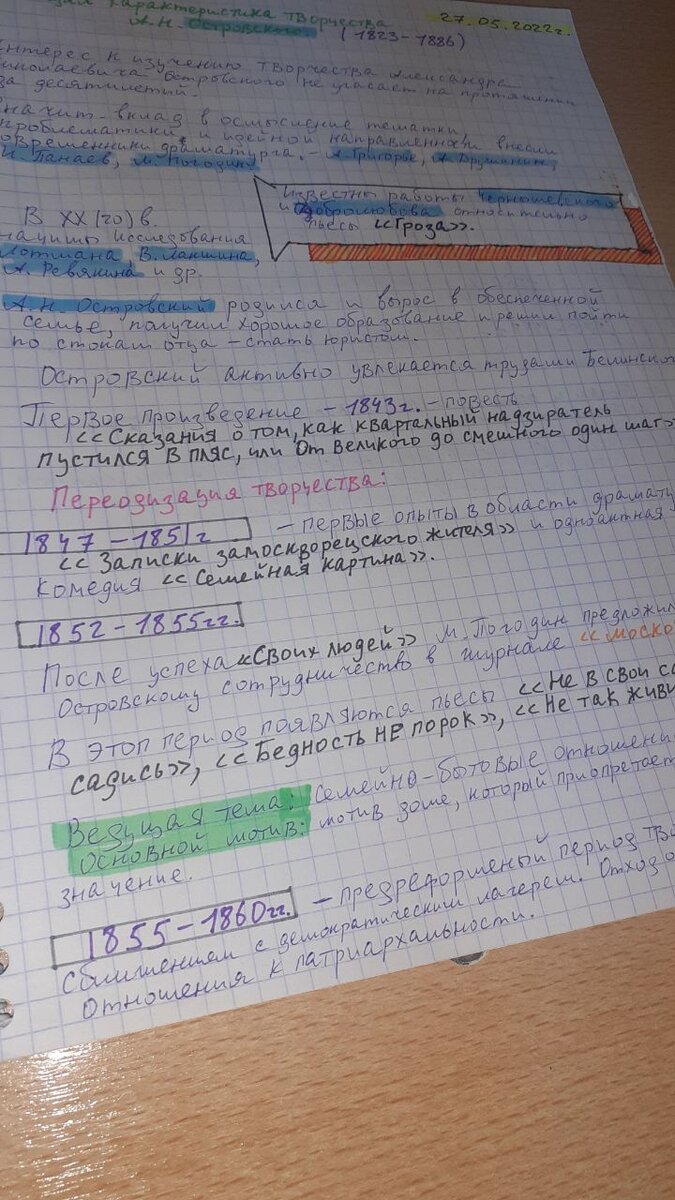 характеристика творчества
А.Н. Островского.
27.05.2022г.
(1823-1886)
Интерес к изучению творчества Александра
Николаевича Островского не угасает на протяжении
десятилетий.
Значит. вклад в осмысление тематики
проблематики и идейной направленности внесли
современники драматурга. - А.Григорье, А.Дружинин,
И. Панаев, М. Погодин.
Известны работы Чернышевского
и Добролюбова относительно
пьесы <<Гроза>>.
В XX(20) в.
исследования
Лотмана, В.Лакшина,
А. Ревякина и др.
А.Н. Островский родился и вырос в обеспеченной
семье, получил хорошое образование и решил пойти
по стопам отца - стать юристом.
Островский активно увлекается трудами Белинского
Первое произведение - 1843г. - повесть
<<Сказания о том, как квартальный надзиратель
пустился в пляс, или от великого до смешного один шаг>>
Переодизация творчества:
1847-1851г - первые опыты в области драмату
<< Записки замоскворецского жителя>> и одноактная
комедия <<Семейная картина>>.
1852-1855гг.
После успеха <<Своих людей>> М. Погодин предложил
Островскому сотрудничество в журнале <<Моско
В этоп период появляются пьесы <<Не в свои са
садись>>, <<Бедность не порок>>, <<Не так живи
Ведущая тема: семейно-бытовые отношени
Основной мотив: мотив доме, который приопретает
значение.
1855-1860гг. - предреформеный период тво
Сближением с демократическим лагерем. Отход о
Отношения к патриархальности.